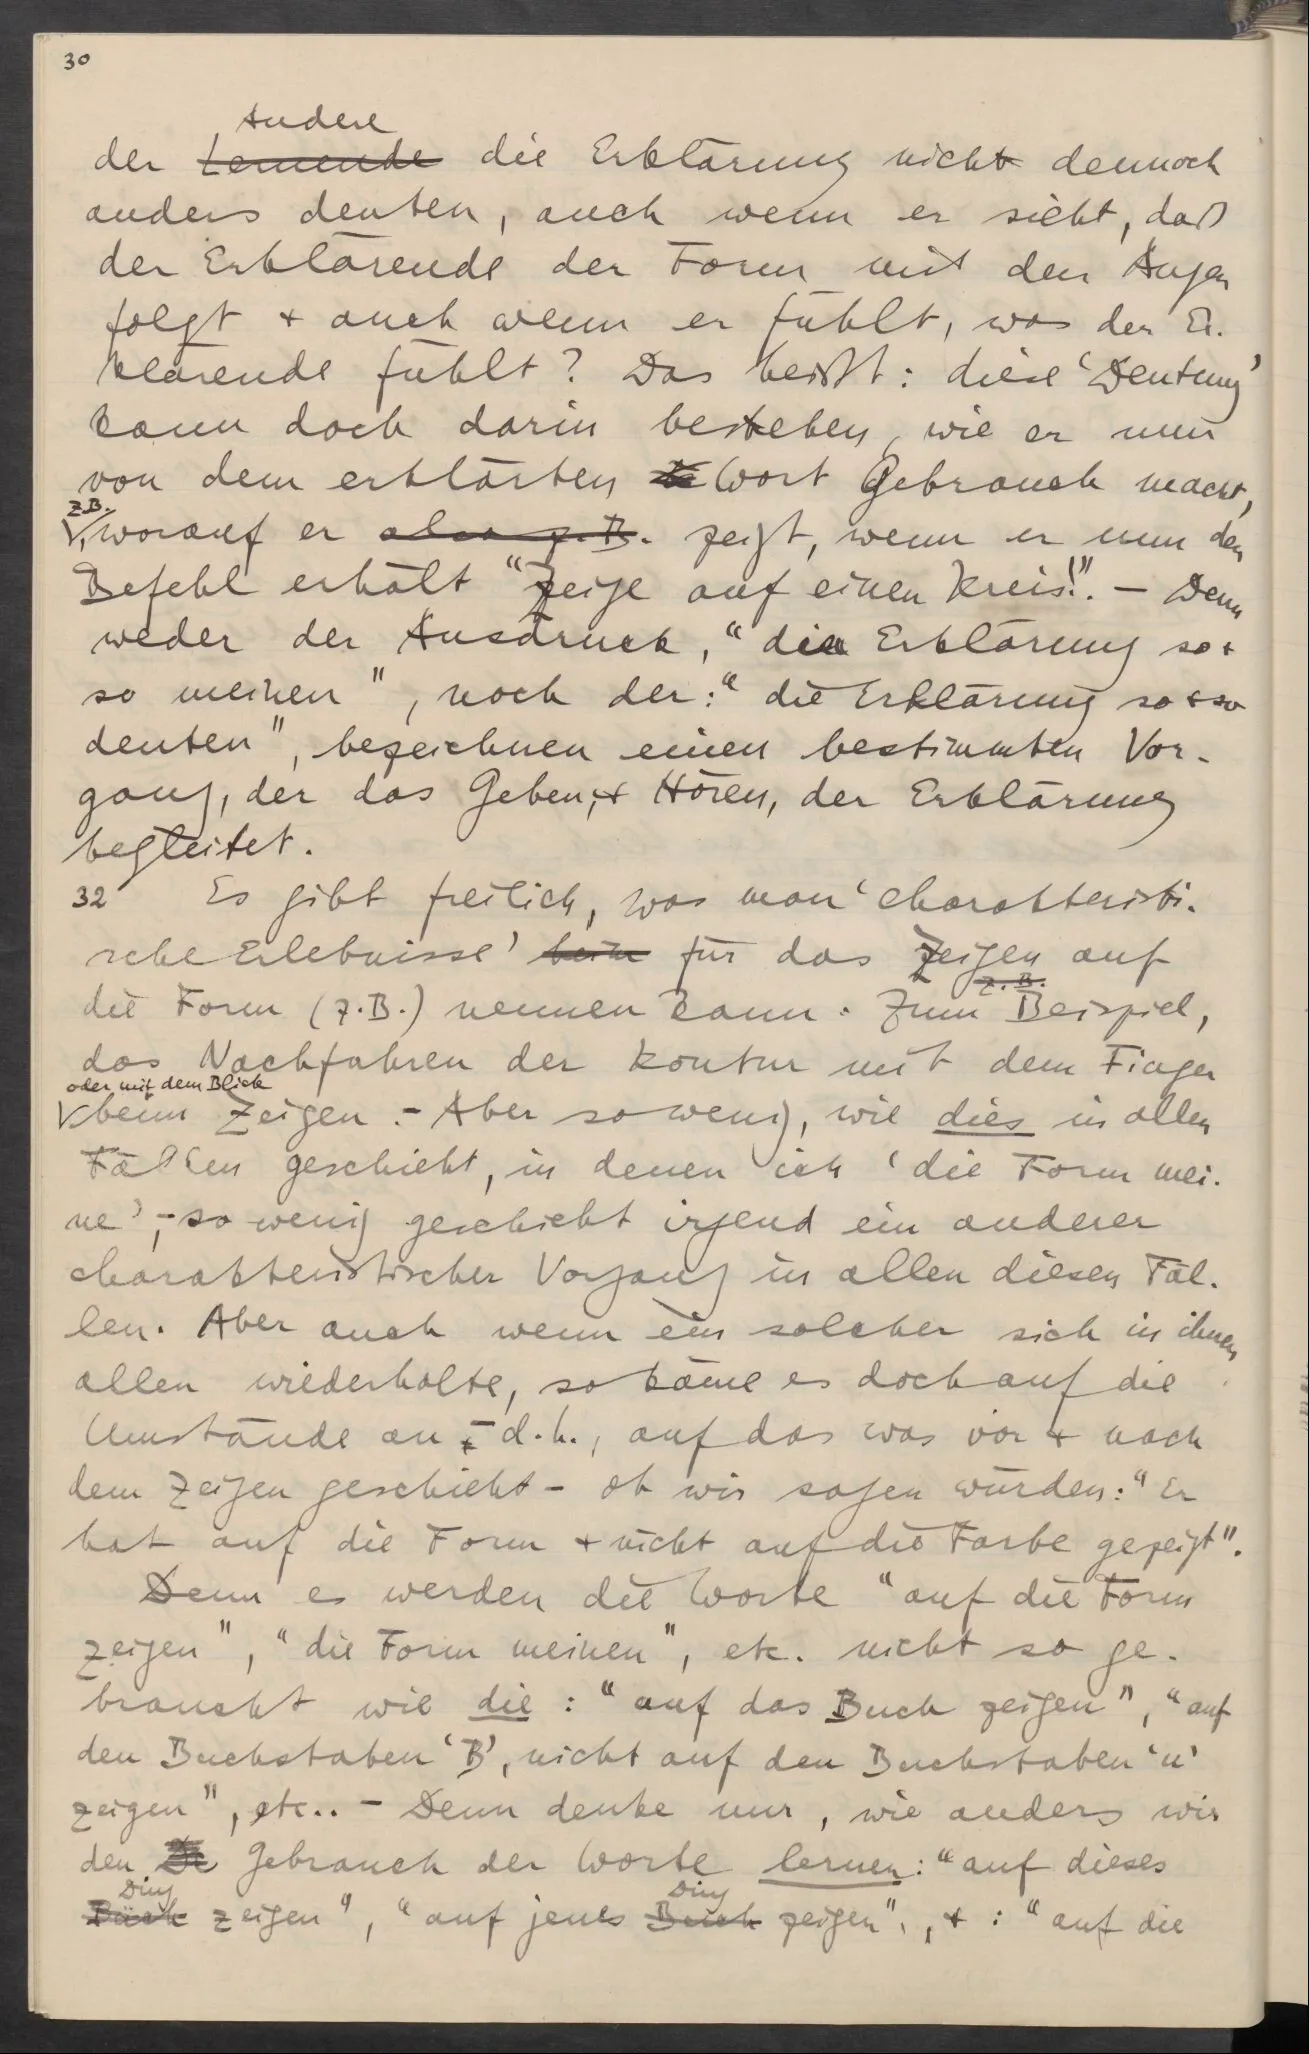 30
Andere
der Lernende die Erklärung nicht dennoch
anders deuten, auch wenn er sieht, daß
der Erklärende der Form mit den Augen
folgt + auch wenn er fühlt, was der Er-
klärende fühlt? Das heißt: diese ‘Deutung’
kann doch darin bestehen, wie er nun
von dem erklärten Wort Gebrauch macht,
z.B.
worauf er also z.B. zeigt, wenn er nun den
Befehl erhält “Zeige auf einen Kreis!”. – Denn
weder der Ausdruck, “die Erklärung so +
so meinen”, noch der: “die Erklärung so + so
deuten”, bezeichnen einen bestimmten Vor-
gang, der das Geben, + Hören, der Erklärung
begleitet.
32 Es gibt freilich, was man ‘charakteristi-
sche Erlebnisse’ beim für das Zeigen auf
z.B.
die Form (z.B.) nennen kann. Zum Beispiel,
das Nachfahren der Kontur mit dem Finger
oder mit dem Blick
beim Zeigen. – Aber sowenig, wie dies in allen
Fällen geschieht, in denen ich ‘die Form mei-
ne’, – so wenig geschieht irgend ein anderer
charakteristischer Vorgang in allen diesen Fäl-
len. Aber auch wenn ein solcher sich in ihnen
allen wiederholte, so käme es doch auf die
Umstände an – d.h., auf das was vor + nach
dem Zeigen geschieht – ob wir sagen würden: “Er
hat auf die Form + nicht auf die Farbe gezeigt”.
Denn es werden die Worte “auf die Form
zeigen”, “die Form meinen”, etc. nicht so ge-
braucht wie die: “auf das Buch zeigen”, “auf
den Buchstaben ‘B’, nicht auf den Buchstaben ‘u’
zeigen”, etc.. – Denn denke nur, wie anders wir
den Gebrauch der Worte lernen: “auf dieses
Ding Ding
Buch zeigen”, “auf jenes Buch zeigen”, + : “auf die